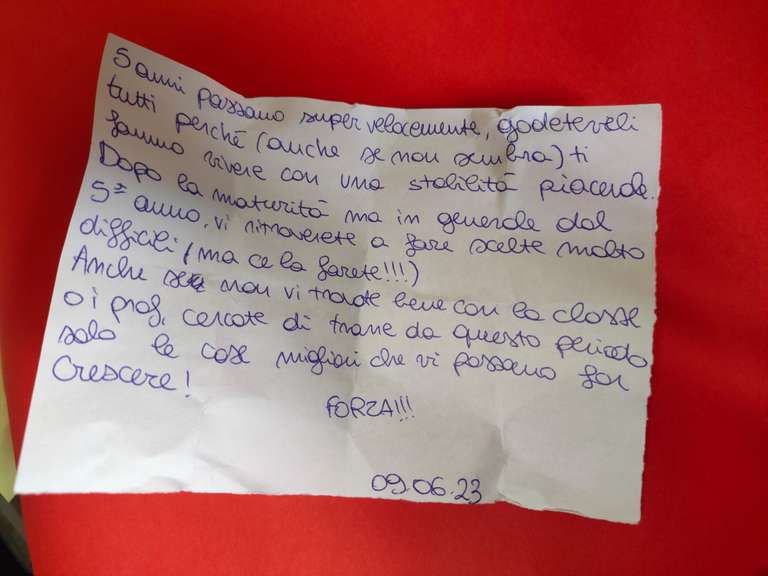 5 anni passano super velocemente, godeteveli
tutti perché (anche se non sembra) ti
fanno vivere con una stabilità piacevole.
Dopo la maturità ma in generale dal
5° anno, vi ritroverete a fare scelte molto
difficili (ma ce la farete!!!)
Anche se non vi trovate bene con la classe
o i prof, cercate di trarre da questo periodo
solo le cose migliori che vi possano far
crescere!
FORZA!!!
09.06.23